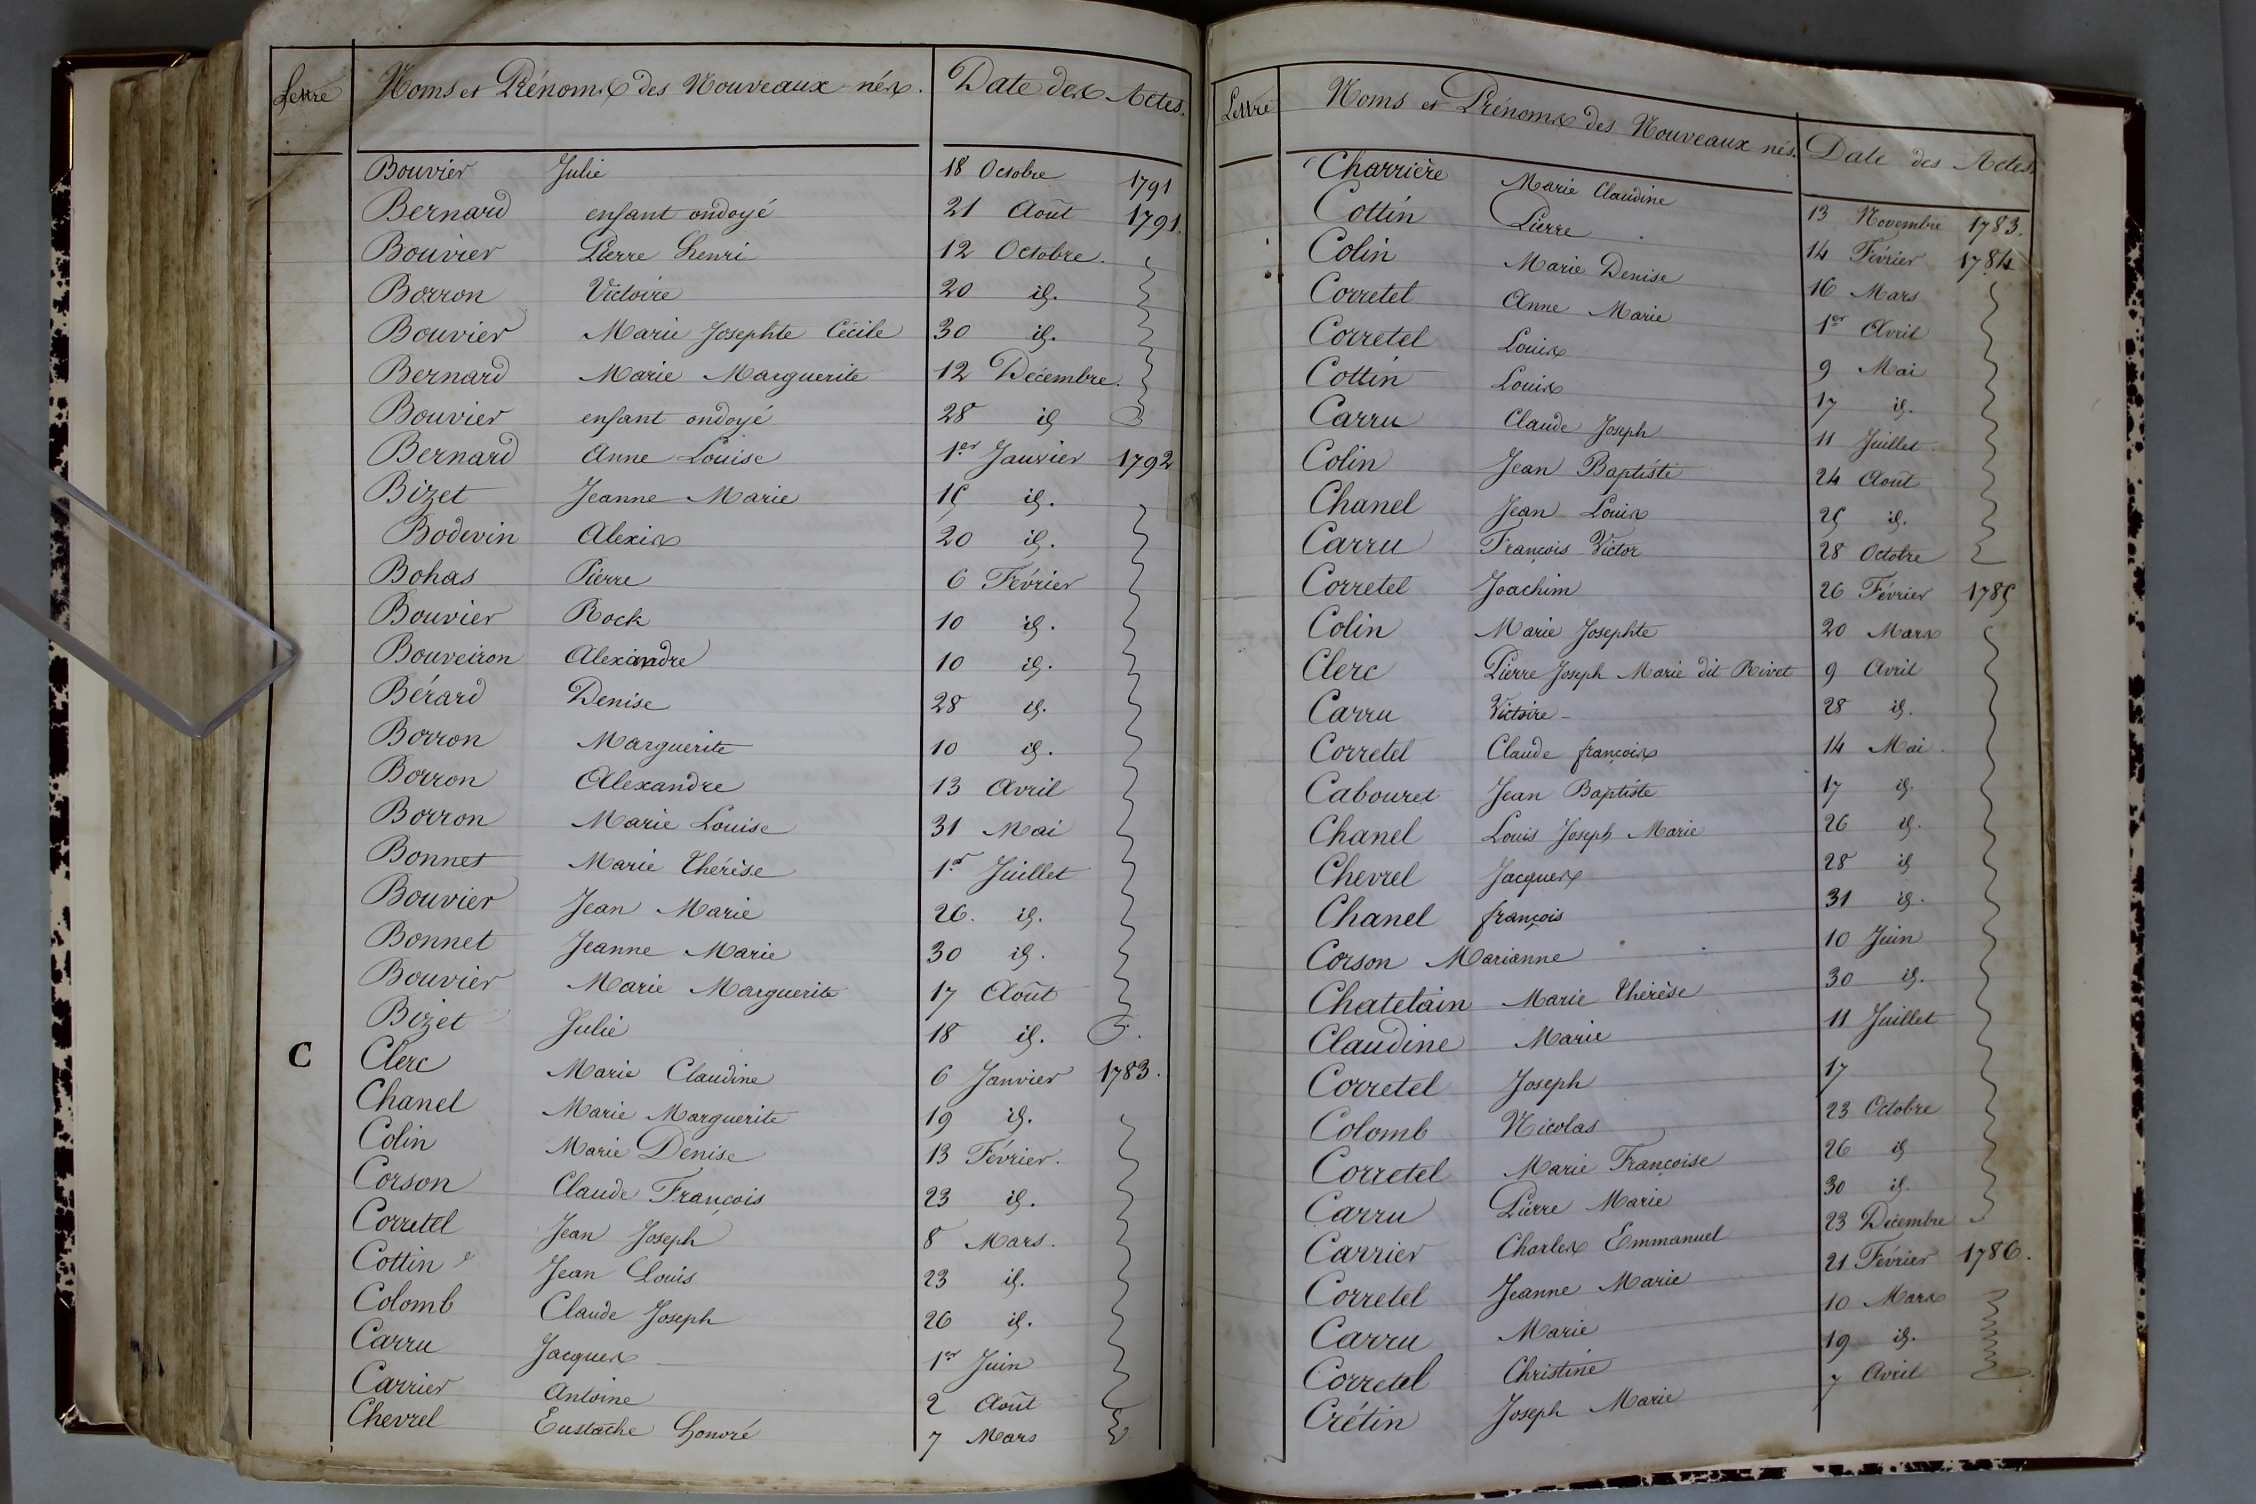 Lettre Noms et Prénoms des Nouveaux-nés. Date des Actes.
Bouvier Julie 18 Octobre 1791
Bernard enfant ondoyé 21 Août 1791.
Bouvier Pierre Henri 12 Octobre.
Borron Victoire 20 id.
Bouvier Marie Josephte Cécile 30 id.
Bernard Marie Marguerite 12 Décembre.
Bouvier enfant ondoyé 28 id
Bernard Anne Louise 1er Janvier 1792
Bizet Jeanne Marie 15 id.
Bodevin Alexis 20 id.
Bohas Pierre 6 Février
Bouvier Rock 10 id.
Bouveiron Alexandre 10 id.
Bérard Denise 28 id.
Borron Marguerite 10 id.
Borron Alexandre 13 Avril
Borron Marie Louise 31 Mai
Bonnet Marie Thérèse 1er Juillet
Bouvier Jean Marie 26. id.
Bonnet Jeanne Marie 30 id.
Bouvier Marie Marguerite 17 Août
Bizet Julie 18 id.
C Clerc Marie Claudine 6 Janvier 1783.
Chanel Marie Marguerite 19 id.
Colin Marie Denise 13 Février.
Corson Claude François 23 id.
Corretel Jean Joseph 8 Mars.
Cottin Jean Louis 23 id.
Colomb Claude Joseph 26 id.
Carru Jacques 1er Juin
Carrier Antoine 2 Août
Chevrel Eustache Honoré 7 Mars
Lettre Noms et Prénoms des Nouveaux nés. Date des Actes.
Charrière Marie Claudine 13 Novembre 1783.
Cottin Pierre 14 Février 1784
Colin Marie Denise 16 Mars
Corretel Anne Marie 1er Avril
Corretel Louis 9 Mai
Cottin Louis 17 id.
Carru Claude Joseph 11 Juillet
Colin Jean Baptiste 24 Août
Chanel Jean Louis 25 id.
Carru François Victor 28 Octobre
Corretel Joachim 26 Février 1785
Colin Marie Josephte 20 Mars
Clerc Pierre Joseph Marie dit Rivet 9 Avril
Carru Victoire 28 id.
Corretel Claude françois 14 Mai
Cabouret Jean Baptiste 17 id.
Chanel Louis Joseph Marie 26 id.
Chevrel Jacques 28 id
Chanel françois 31 id.
Corson Marianne 10 Juin
Chatelain Marie Thérèse 30 id.
Claudine Marie 11 Juillet
Corretel Joseph 17
Colomb Nicolas 23 Octobre
Corretel Marie Françoise 26 id
Carru Pierre Marie 30 id.
Carrier Charles Emmanuel 23 Décembre
Corretel Jeanne Marie 21 Février 1786.
Carru Marie 10 Mars
Corretel Christine 19 id.
Crétin Joseph Marie 7 Avril